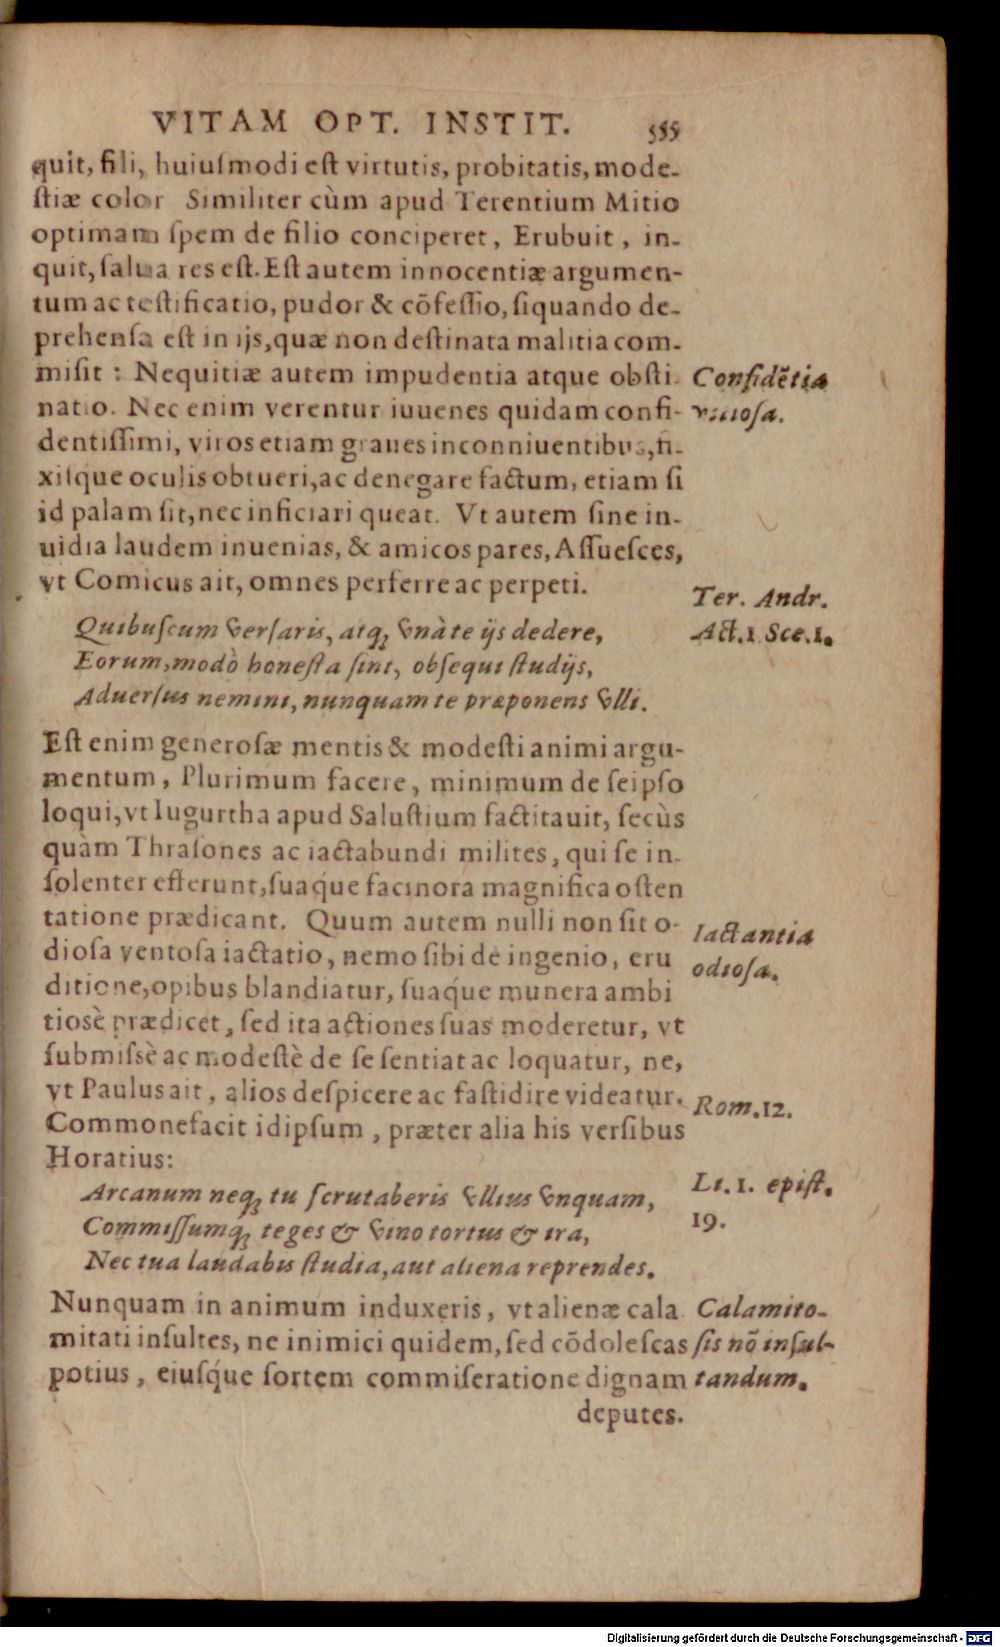 VITAM OPT. INSTIT. 555
quit, fili, huiuſmodi eſt virtutis, probitatis, mode-
ſtiæ color Similiter cùm apud Terentium Mitio
optimam ſpem de filio conciperet, Erubuit, in-
quit, ſalua res eſt. Eſt autem innocentiæ argumen-
tum ac teſtificatio, pudor & cõfeſſio, ſiquando de-
prehenſa eſt in ijs, quæ non deſtinata malitia com-
miſit: Nequitiæ autem impudentia atque obſti-
natio. Nec enim verentur iuuenes quidam confi-
dentiſſimi, viros etiam graues inconniuentibus, fi-
xiſq́ue oculis obtueri, ac denegare factum, etiam ſi
id palam ſit, nec inficiari queat. Vt autem ſine in-
uidia laudem inuenias, & amicos pares, Aſſueſces,
vt Comicus ait, omnes perferre ac perpeti.
Quibuſcum verſaris, atq; vnà te ijs dedere,
Eorum, modò honeſta ſint, obſequi ſtudijs,
Aduerſus nemini, nunquam te præponens vlli.
Eſt enim generoſæ mentis & modeſti animi argu-
mentum, Plurimum facere, minimum de ſeipſo
loqui, vt Iugurtha apud Saluſtium factitauit, ſecùs
quàm Thraſones ac iactabundi milites, qui ſe in-
ſolenter efferunt, ſuaq́ue facinora magnifica oſten
tatione prædicant. Quum autem nulli non ſit o-
dioſa ventoſa iactatio, nemo ſibi de ingenio, eru
ditione, opibus blandiatur, ſuaq́ue munera ambi
tiosè prædicet, ſed ita actiones ſuas moderetur, vt
ſubmiſsè ac modeſtè de ſe ſentiat ac loquatur, ne,
vt Paulus ait, alios deſpicere ac faſtidire videatur.
Commonefacit idipſum, præter alia his verſibus
Horatius:
Arcanum neq; tu ſcrutaberis vllius vnquam,
Commiſſumq; teges & vino tortus & ira,
Nec tua laudabis ſtudia, aut aliena reprendes.
Nunquam in animum induxeris, vt alienæ cala
mitati inſultes, ne inimici quidem, ſed cõdoleſcas
potius, eiuſq́ue ſortem commiſeratione dignam
deputes.
Confidẽtia
vitioſa.
Ter. Andr.
Act. 1 Sce. 1.
Iactantia
odioſa.
Rom. 12.
Li. 1. epiſt.
19.
Calamito-
ſis nõ inſul-
tandum.
Digitalisierung gefördert durch die Deutsche Forschungsgemeinschaft - DFG